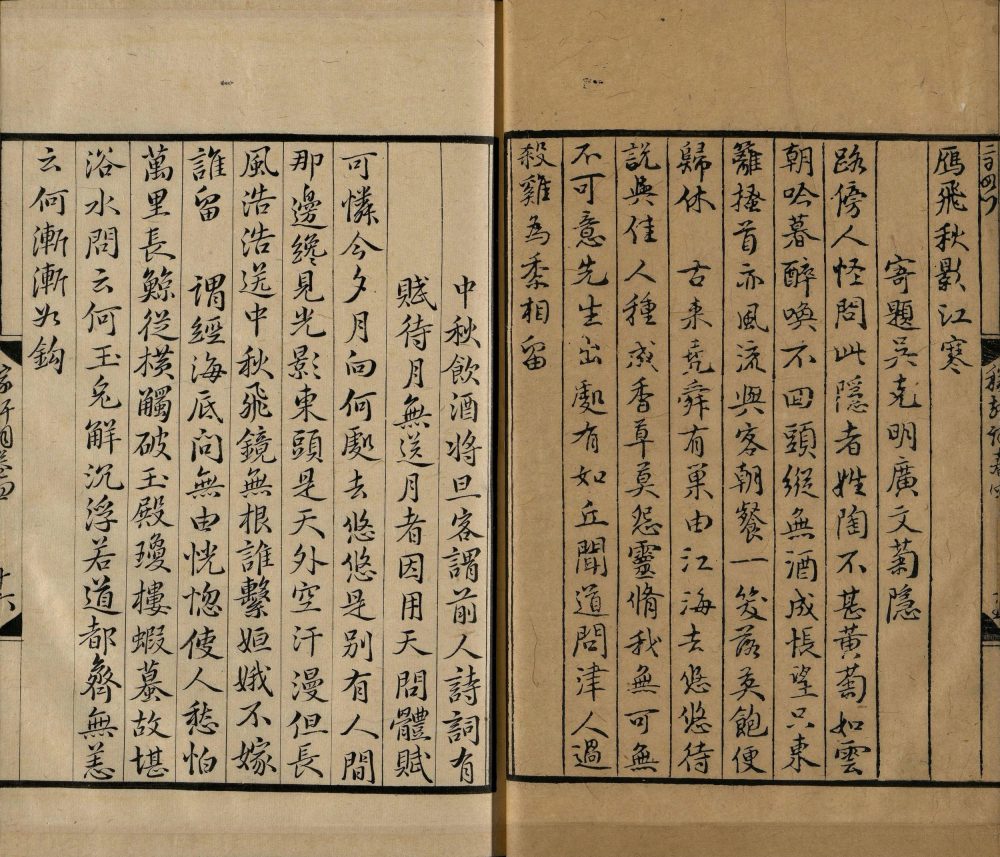 雁飛秋影江寒
寄題吳克明廣文菊隱
路傍人怪問此隱者姓陶不甚黃菊如雲
朝吟暮醉喚不回頭縱無酒成悵望只東
籬搔首亦風流與客朝餐一笑落英飽便
歸休　古來堯舜有巢由江海去悠悠待
說與佳人種成香草莫怨靈脩我無可無
不可意先生出處有如丘聞道問津人過
殺雞為黍相留
中秋飲酒將旦客謂前人詩詞有
賦待月無送月者因用天問體賦
可憐今夕月向何處去悠悠是别有人間
那邊纔見光影東頭是天外空汗漫但長
風浩浩送中秋飛鏡無根誰繫姮娥不嫁
誰留　謂經海底问無由恍惚使人愁怕
萬里長鯨從橫觸破玉殿瓊樓蝦蟇故堪
浴水問云何玉兔解沉浮若道都齊無恙
云何漸漸如鈎